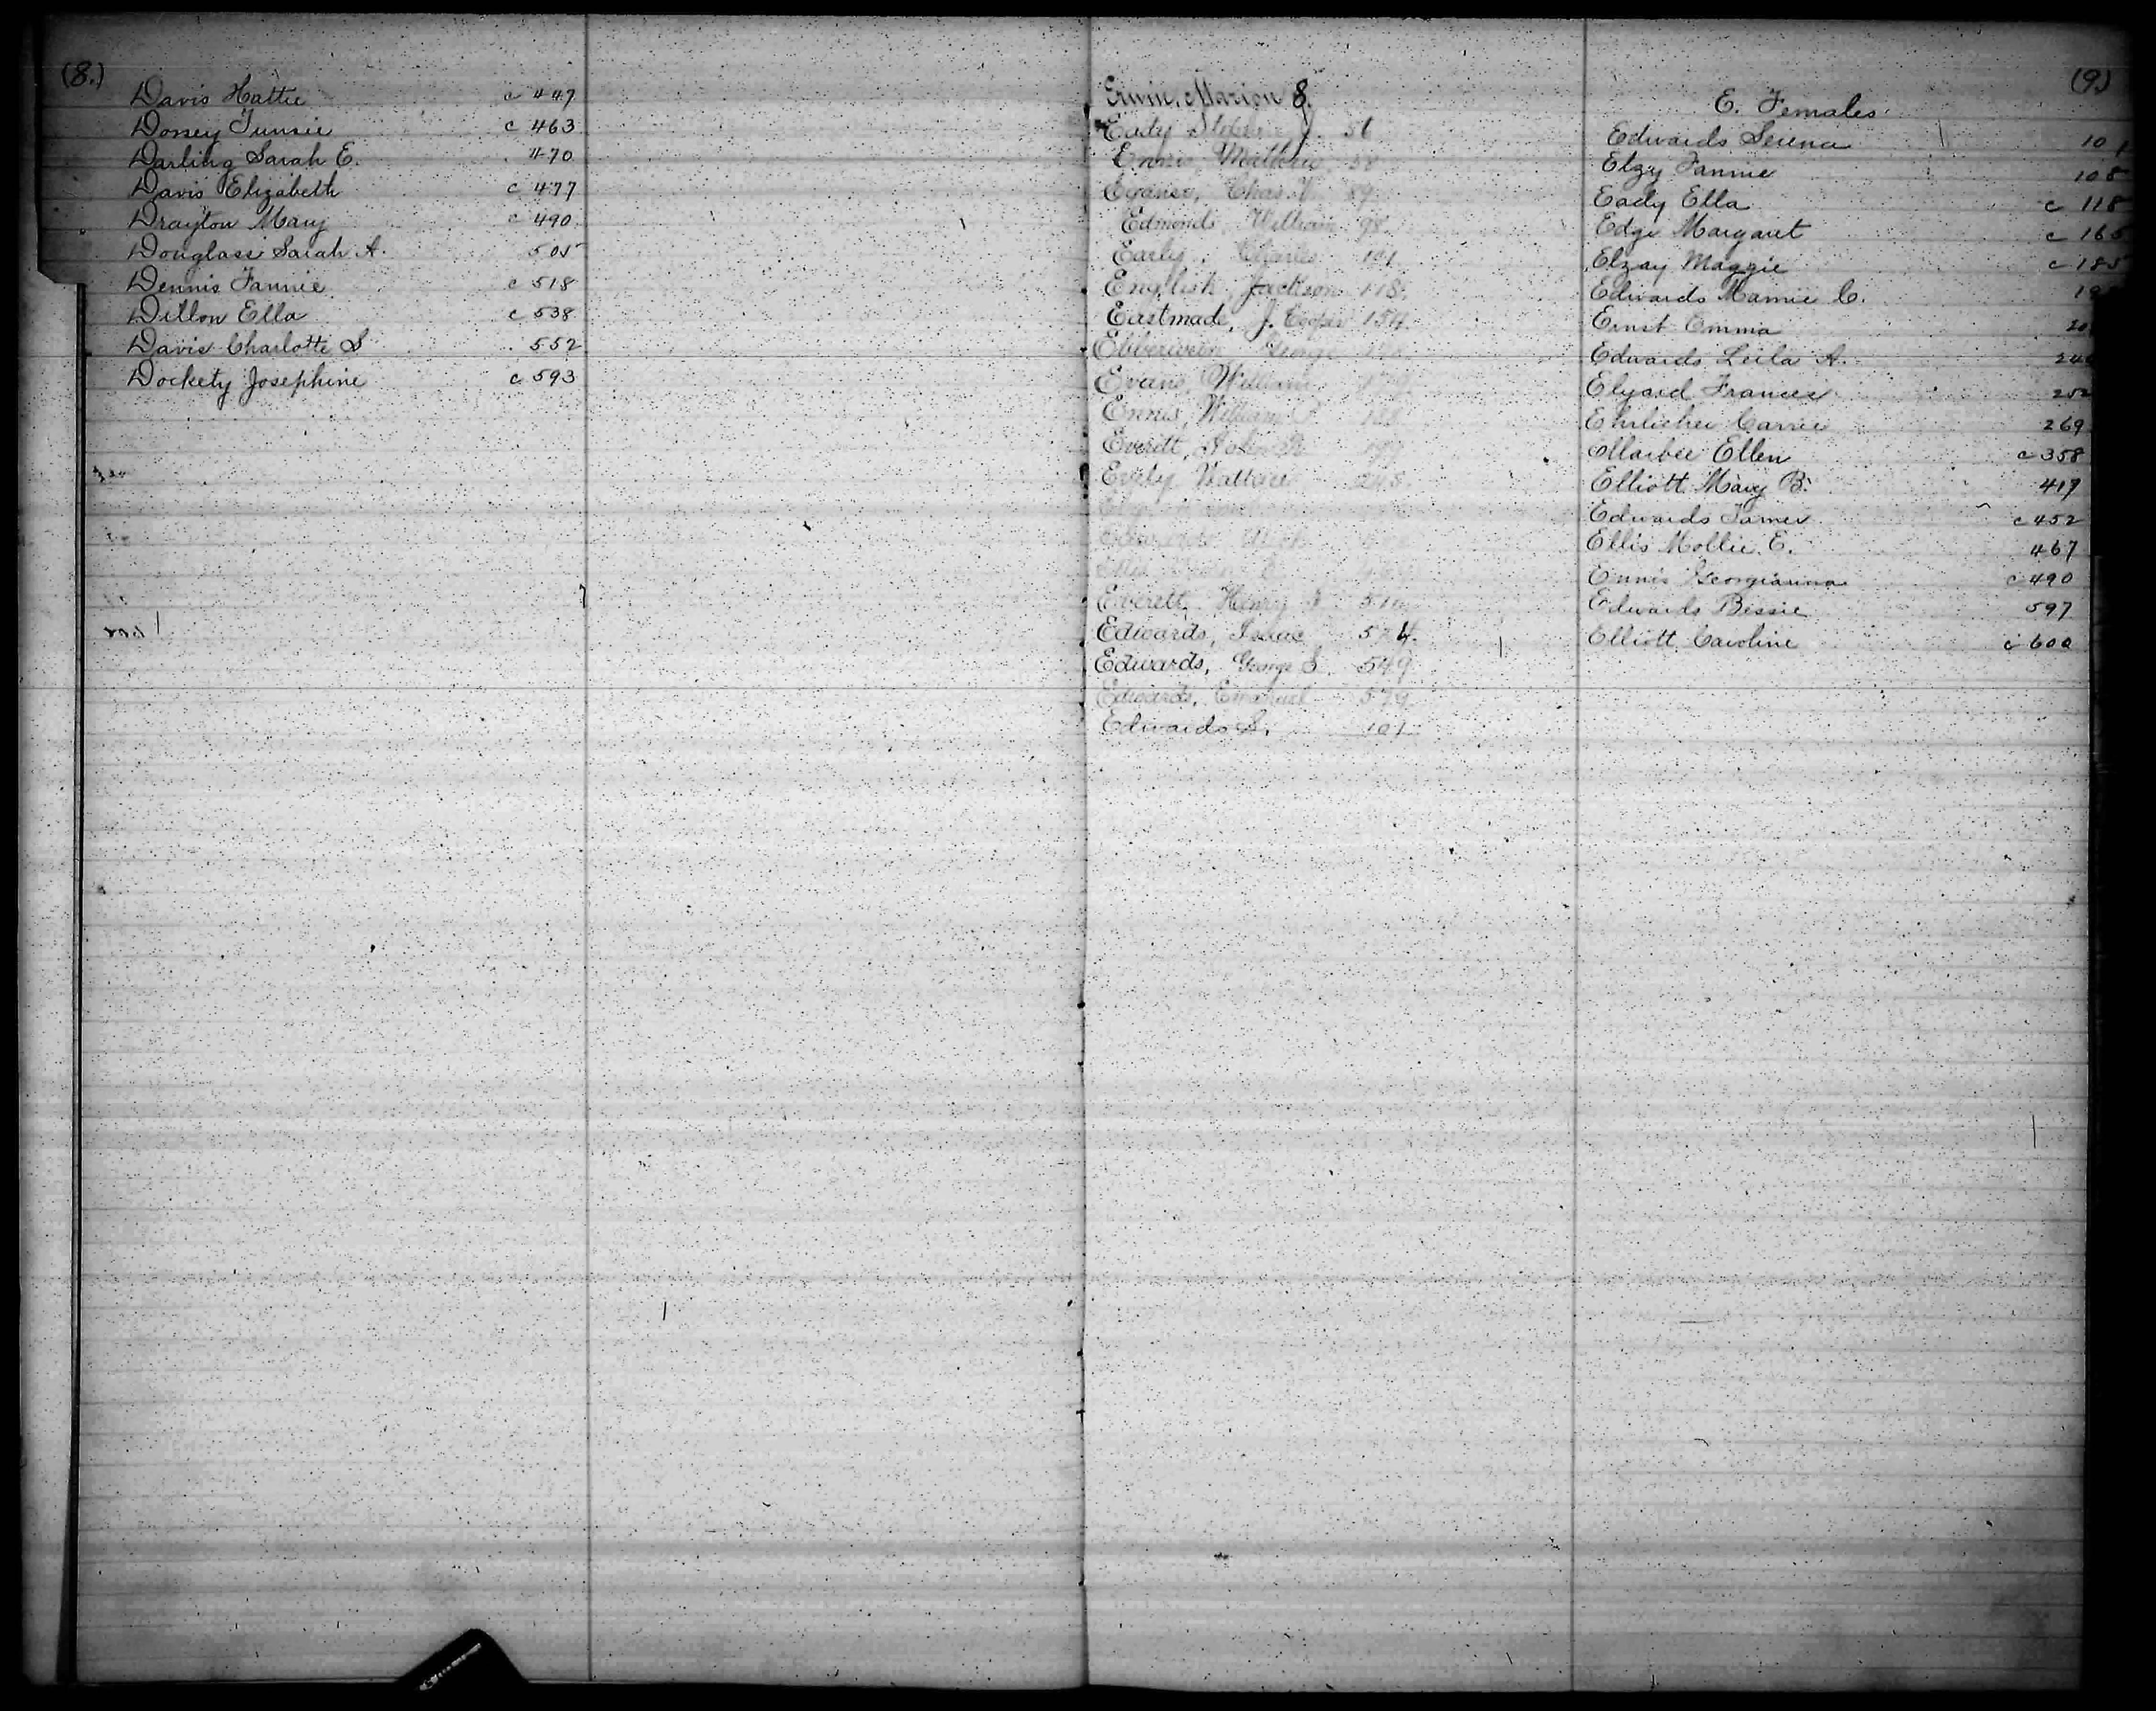 (8.)
Davis Hattie c 447
Dorsey Junnie c 463
Darling Sarah E. 470
Davis Elizabeth c 477
Drayton Mary c 490
Douglass Sarah A. 505
Dennis Fannie c 518
Dillon Ella c 538
Davis Charlotte S 552
Dockety Josephine c 593
Erwin, Marion 8.
Eady J. 56
Ennis, Mathew 58
Evans, Chas. 89
Edmonds William 98
Early, Charles 101
English, Jackson 118.
Eastmade, J. Cooper 154
George
Evans, William
Ennis, William
Everett, John
Evely Wallace 248
Everett, Henry
Edwards, Isaac 574.
Edwards, George S. 549
Edwards, Emanuel 579
Edwards S. 101
(9.)
E. Females.
Edwards Serena 101
Elzy Fannie 108
Eady Ella c 118
Edge Margaret c 165
Elzay Maggie c 185
Edwards Mamie C.
Ernst Emma 20
Edwards Leila A. 240
Elyard Frances 252
Ehrlicher Carrie 269
Marbee Ellen c 358
Elliott Mary B. 417
Edwards James c 452
Ellis Mollie E. 467
Ennis Georgianna c 490
Edwards Bessie 597
Elliott Caroline c 600